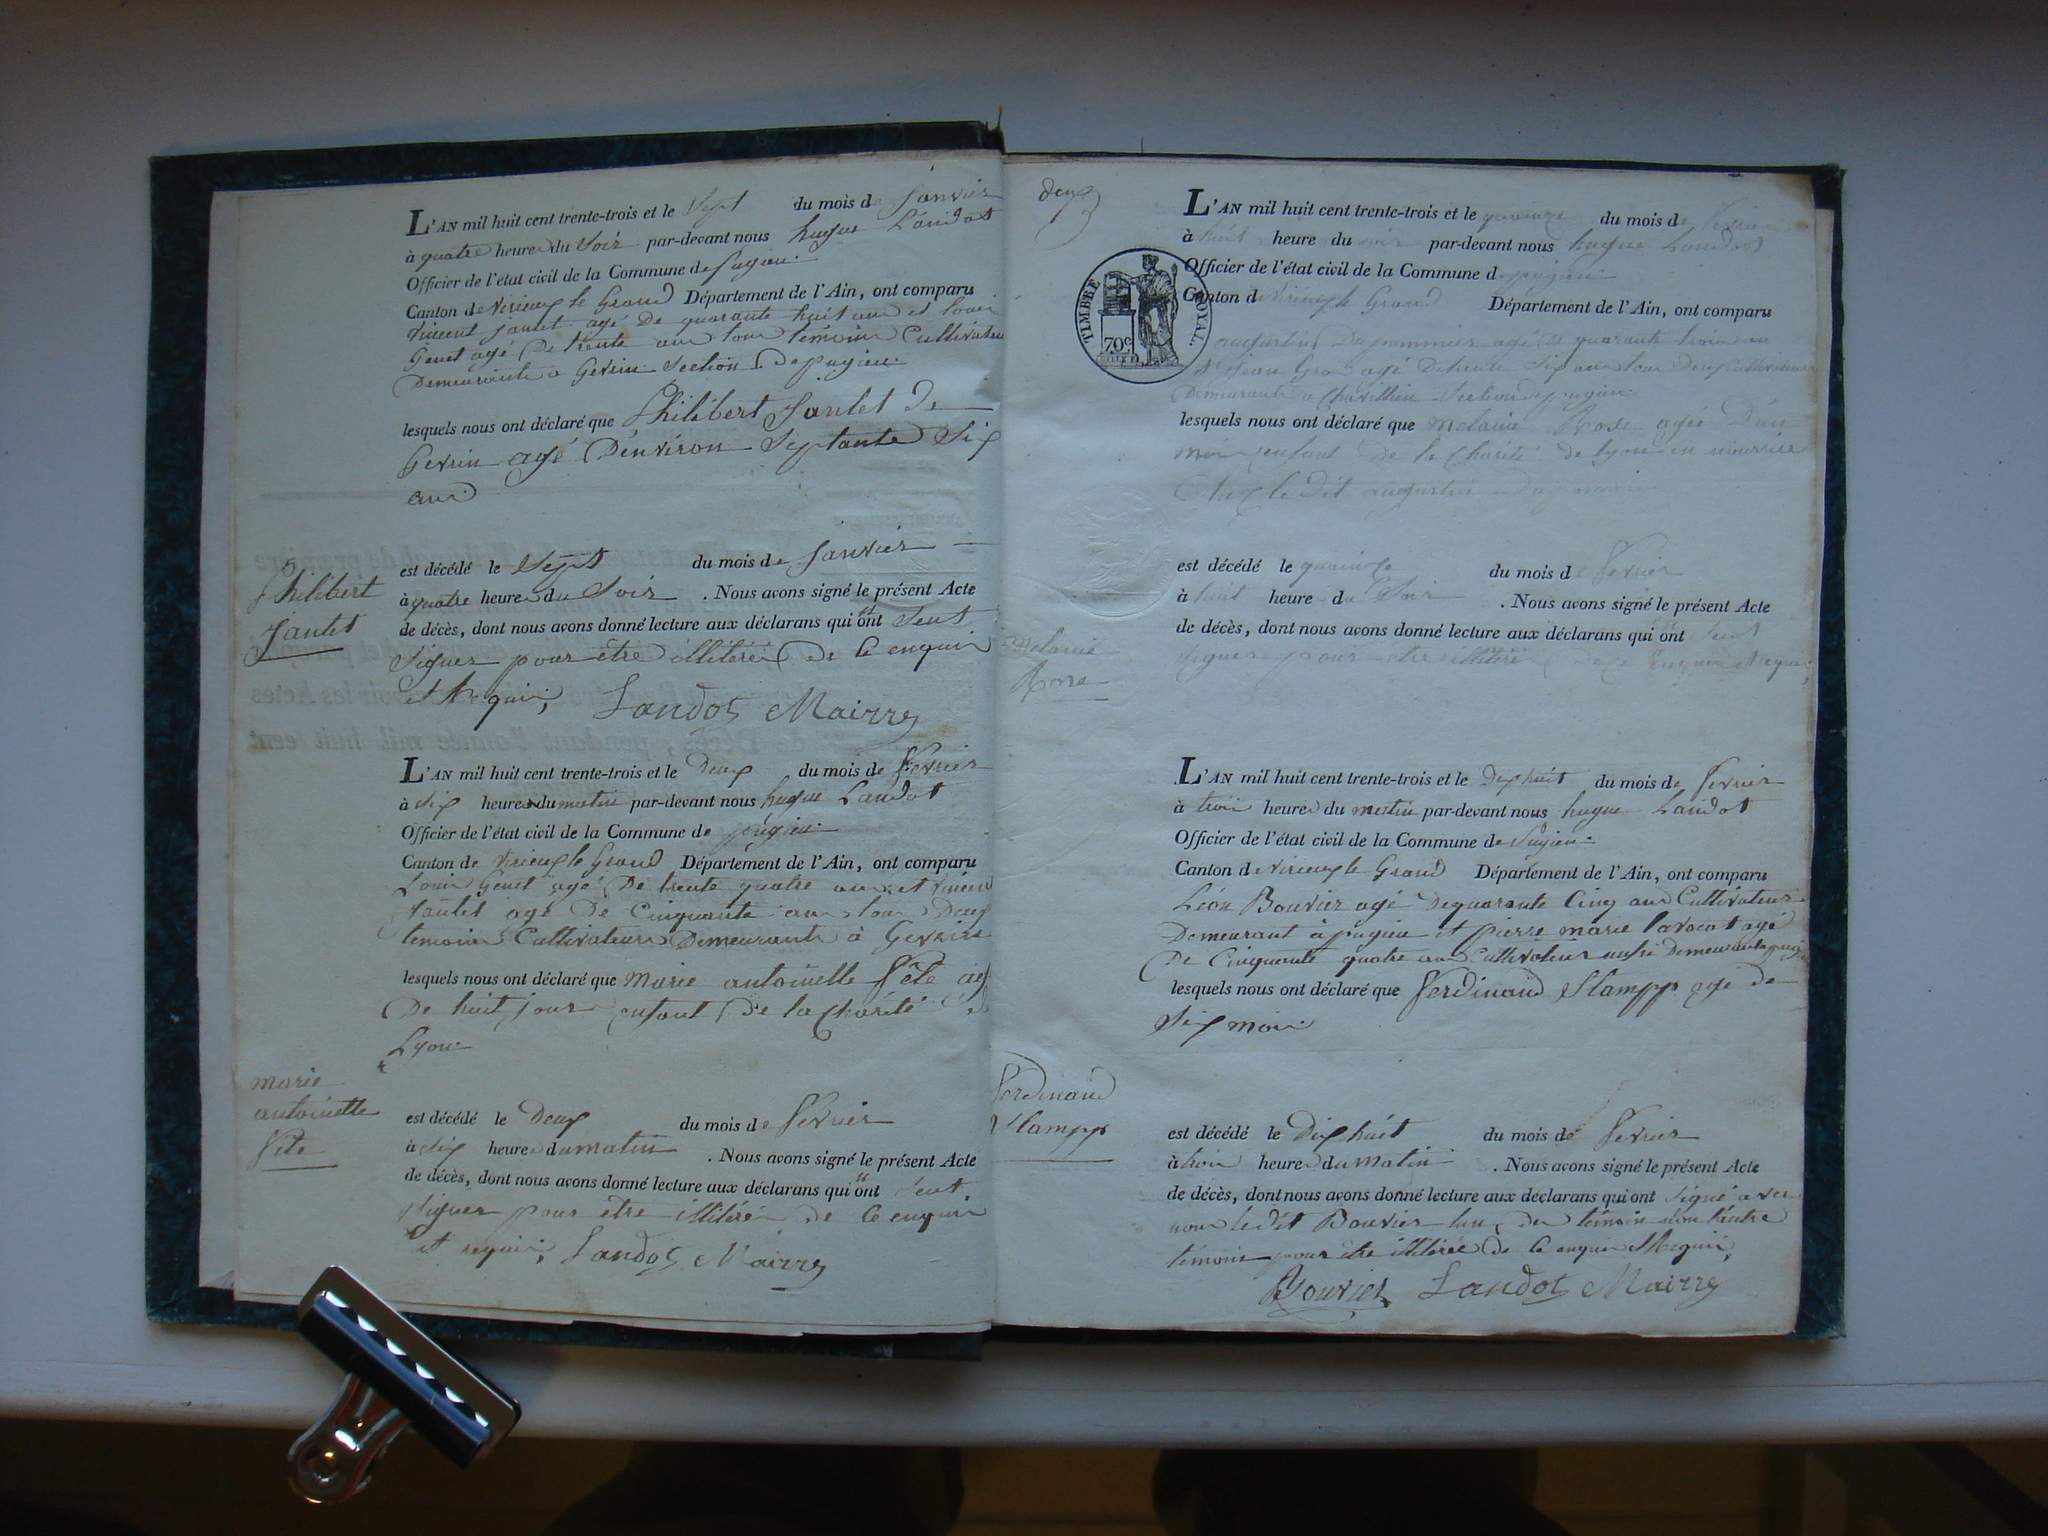 L'AN mil huit cent trente-trois et le Sept du mois de Janvier
à quatre heure du Soir par-devant nous hugue Landot
Officier de l'état civil de la Commune de pugieu
Canton de Virieux le Grand Département de l'Ain, ont comparu
Vincent Jantet agé De quarante huit ans et louis
Genet agé De trente ans tous témoins Cultivateurs
Demeurants a Gevrin Section De pugieu
lesquels nous ont déclaré que Philibert Jantet De
Gevrin agé D'environ Septante Six
ans
Philibert
Jantet
est décédé le Sept du mois de Janvier
à quatre heure du Soir . Nous avons signé le présent Acte
de décès, dont nous avons donné lecture aux déclarans qui ont
Signer pour être illitéré De ce enquis
et Requis, Landot Mairre
L'AN mil huit cent trente-trois et le Deux du mois de fevrier
à Six heure du matin par-devant nous hugue Landot
Officier de l'état civil de la Commune de pugieu
Canton de Virieux le Grand Département de l'Ain, ont comparu
Louis Genet agé De trente quatre ans et Vincent
Jantet agé De Cinquante ans tous Deux
temoins Cultivateurs Demeurants à Gevrin
lesquels nous ont déclaré que Marie antoinette féte
De huit jours enfant De la Charité De
Lyon
marie
antoinette
féte
est décédé le Deux du mois de fevrier
à Six heure du matin . Nous avons signé le présent Acte
de décès, dont nous avons donné lecture aux déclarans qui ont
Signer pour etre illitéré de ce enquis
et requis, Landot Mairre
deux
L'AN mil huit cent trente-trois et le quinze du mois de fevrier
à huit heure du soir par-devant nous hugue Landot
Officier de l'état civil de la Commune de pugieu
TIMBRE ROYAL.
70c
Canton de Virieux le Grand Département de l'Ain, ont comparu
augustin agé de quarante trois ans
et jean agé De trente Six ans tous Deux Cultivateurs
Demeurants a Section de pugieu
lesquels nous ont déclaré que melanie Rose agée D'un
mois enfant De la Charité de lyon en nourrice
Chez le Dit augustin
melanie
Rose
est décédé le quinze du mois de fevrier
à huit heure du Soir . Nous avons signé le présent Acte
de décès, dont nous avons donné lecture aux déclarans qui ont
Signer pour etre illitéré De ce enquis et requis,
L'AN mil huit cent trente-trois et le Dix huit du mois de fevrier
à trois heure du matin par-devant nous hugue Landot
Officier de l'état civil de la Commune de Pugieu
Canton de Virieux le Grand Département de l'Ain, ont comparu
Léon Bouvier agé De quarante Cinq ans Cultivateur
Demeurant à pugieu et pierre marie lavocat agé
De Cinquante quatre ans Cultivateur aussi Demeurant a pugieu
lesquels nous ont déclaré que Ferdinand Stampp age de
Six mois
Ferdinand
Stampp
est décédé le Dix huit du mois de fevrier
à trois heure du Matin . Nous avons signé le présent Acte
de décès, dont nous avons donné lecture aux déclarans qui ont signé avec
nous le dit Bouvier lun des témoins non l'autre
témoin pour être illitéré De ce enquis et Requis,
Bouvier Landot Mairre